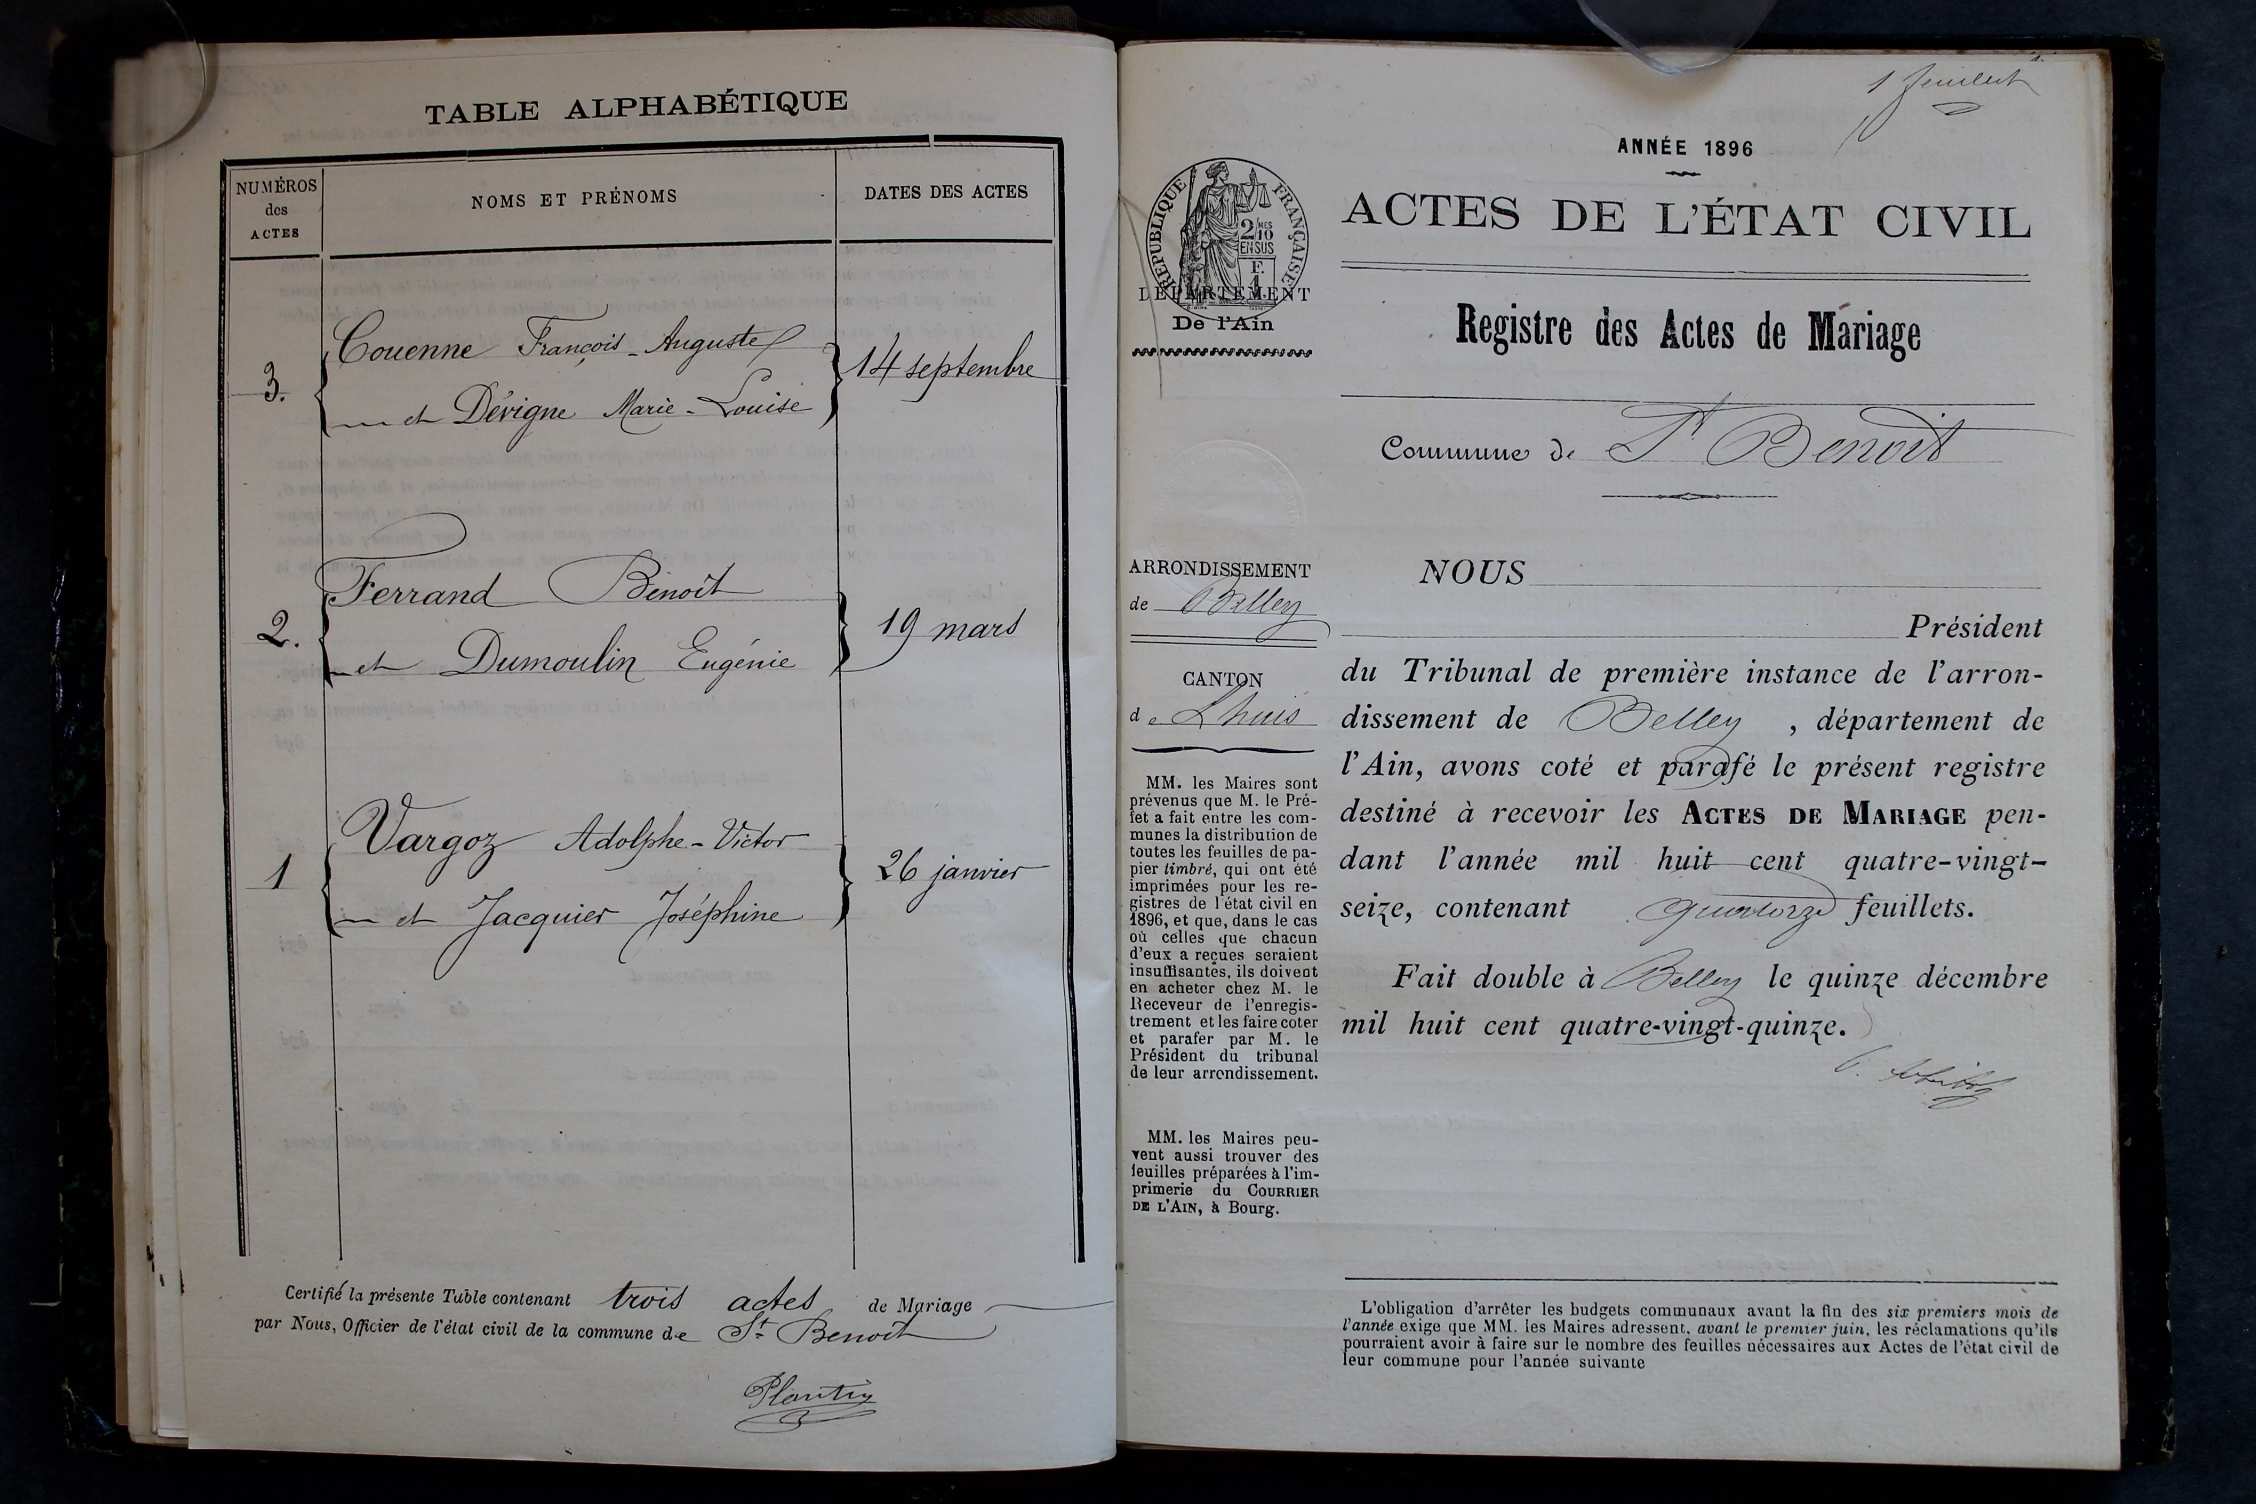 TABLE ALPHABÉTIQUE
NUMÉROS
des
ACTES
NOMS ET PRÉNOMS
DATES DES ACTES
3.
Couenne François-Auguste
et Dévigne Marie-Louise
14 septembre
2.
Ferrand Benoît
et Dumoulin Eugénie
19 mars
1
Vargoz Adolphe-Victor
et Jacquier Joséphine
26 janvier
Certifié la présente Table contenant trois actes de Mariage
par Nous, Officier de l'état civil de la commune de St Benoit
Plantin
1 feuillet
ANNÉE 1896
RÉPUBLIQUE FRANÇAISE
2/10 MES
EN SUS
F.
1
DÉPARTEMENT
De l'Ain
ACTES DE L'ÉTAT CIVIL
Registre des Actes de Mariage
Commune de St Benoit
ARRONDISSEMENT
de Belley
CANTON
de Lhuis
MM. les Maires sont
prévenus que M. le Pré-
fet a fait entre les com-
munes la distribution de
toutes les feuilles de pa-
pier timbré, qui ont été
imprimées pour les re-
gistres de l'état civil en
1896, et que, dans le cas
où celles que chacun
d'eux a reçues seraient
insuffisantes, ils doivent
en acheter chez M. le
Receveur de l'enregis-
trement et les faire coter
et parafer par M. le
Président du tribunal
de leur arrondissement.
MM. les Maires peu-
vent aussi trouver des
feuilles préparées à l'im-
primerie du COURRIER
DE L'AIN, à Bourg.
NOUS
Président
du Tribunal de première instance de l'arron-
dissement de Belley , département de
l'Ain, avons coté et parafé le présent registre
destiné à recevoir les ACTES DE MARIAGE pen-
dant l'année mil huit cent quatre-vingt-
seize, contenant quatorze feuillets.
Fait double à Belley le quinze décembre
mil huit cent quatre-vingt-quinze.
L'obligation d'arrêter les budgets communaux avant la fin des six premiers mois de
l'année exige que MM. les Maires adressent, avant le premier juin, les réclamations qu'ils
pourraient avoir à faire sur le nombre des feuilles nécessaires aux Actes de l'état civil de
leur commune pour l'année suivante